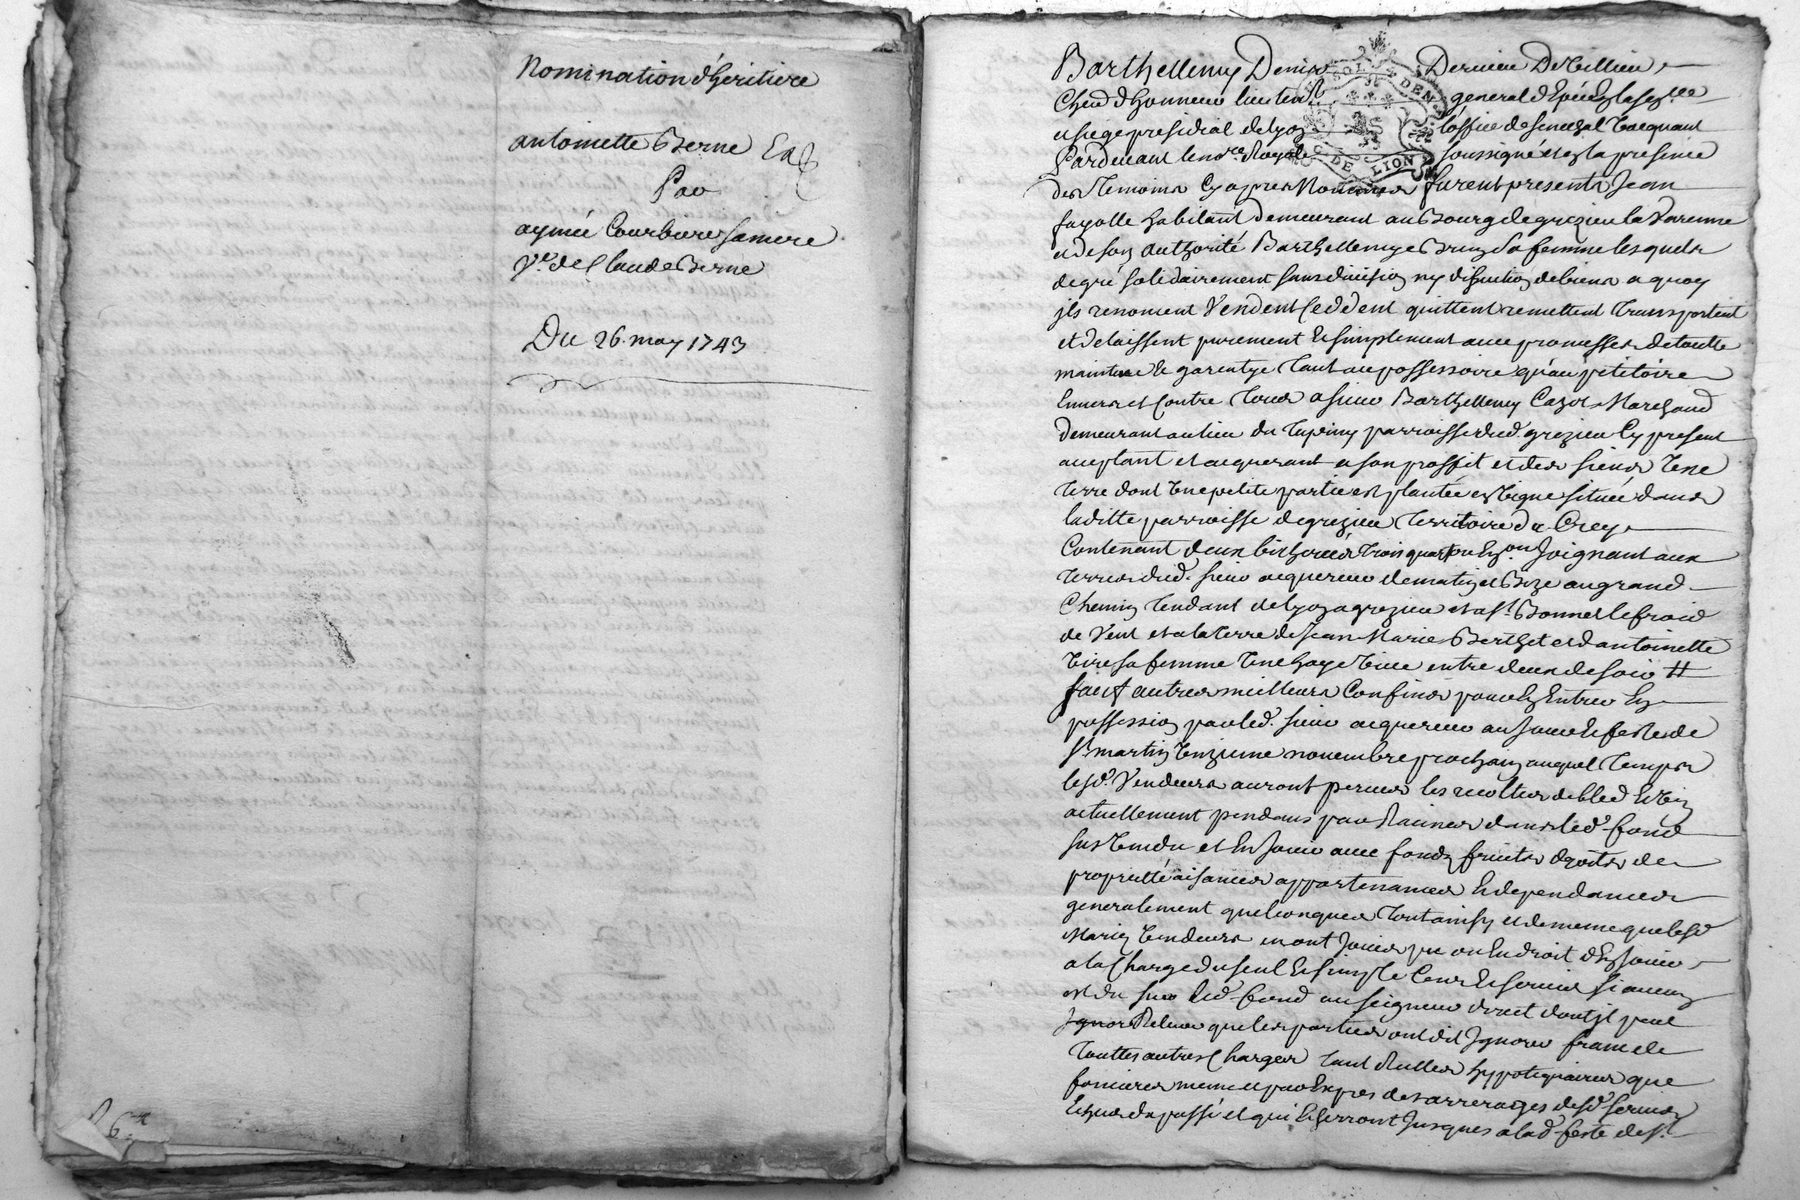 Nomination d'heritiere
antoinette Berne
Par
aymée Courbiere sa mere
Ve. de Claude Berne
Du 26. may 1743
6
Barthellemy Denis Derieu De Villieu
Chev d'honneur lieuten general d'Epée En la
et siege presidial de lyon l'office de senechal vacquant
Pardevant le nore. Royal soussigné et en la presence
SOL DEN
G DE LION
des temoins Cy apres Nommés furent presents Jean
fayolle habitant demeurant au Bourg de grezieu la Varenne
et de son authorité Barthellemye Brun Sa femme lesquels
de gré solidairement sans division ny discution de biens a quoy
jls renoncent Vendent Ceddent quittent remettent transportent
et delaissent purement et simplement avec promesses de toutte
maintenue et garentye tant au possessoire qu'au petitoire
Envers et Contre tous a sieur Barthellemy Cazot Marchand
demeurant au lieu du tupiny parroisse dud. grezieu Cy present
acceptant et acquerant a son proffit et des siens Une
terre dont Une petite partie est plantée en Vigne située dans
laditte parroisse de grezieu territoire du Crey
Contenant deux bicherées trois quart ou Environ Joignant aux
terres dud. sieur acquereur de matin et Bize au grand
Chemin tendant de lyon a grezieu et a St. Bonnet le froid
de Vent et a la terre de Jean Marie Berthet et d'antoinette
sa femme Une haye Vive entre deux de soir #
sauf autres meilleurs Confins pour En Entrer En
possession par led. sieur acquereur au Jour et feste de
St. martin Unzieme novembre prochain auquel temps
lesd. Vendeurs auront perceus les recoltes de bled et Vin
actuellement pendans par Racines dans led. fond
sus Vendu et En Jouir avec fonds fruits droits de
proprietté aisances appartenances et dependances
generalement quelconques tout ainsy et de meme que lesd.
Mariez Vendeurs en ont Jouis pu ou En droit d'En Jouir
a la Charge du seul et simple Cens et servis si aucun
est du sur led. fond au seigneur direct dont jl peut
Relever que les parties ont dit Ignorer franc de
touttes autres Charges tant dettes hypotequaires que
foncieres meme et par Expres des arrerages desd. servis
Echus du passé et qui Echerront Jusques a lad. feste de St.